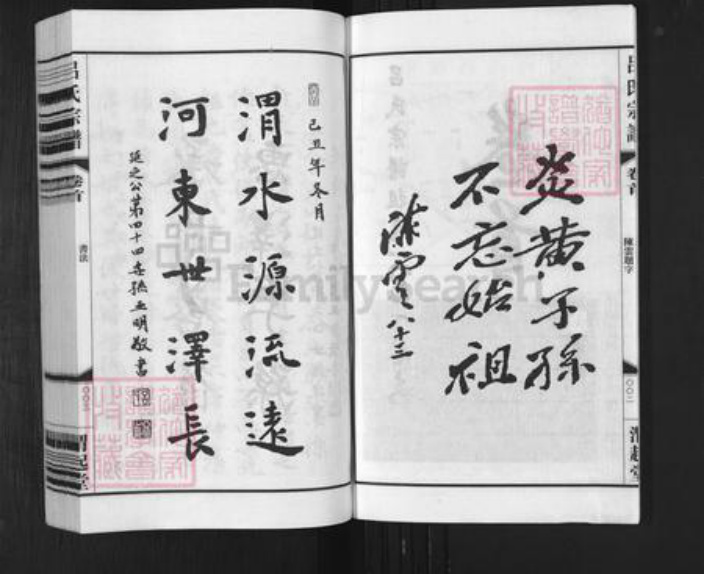 呂氏宗譜
卷首
陳雲題字
〇〇二
渭起堂
炎黃子孫
不忘始祖
陳雲 八十三
己丑年冬月
渭水源流遠
河東世澤長
延之公第四十四世孫五明敬書
呂氏宗譜
卷首
書法
〇〇三
渭起堂
FamilySearch